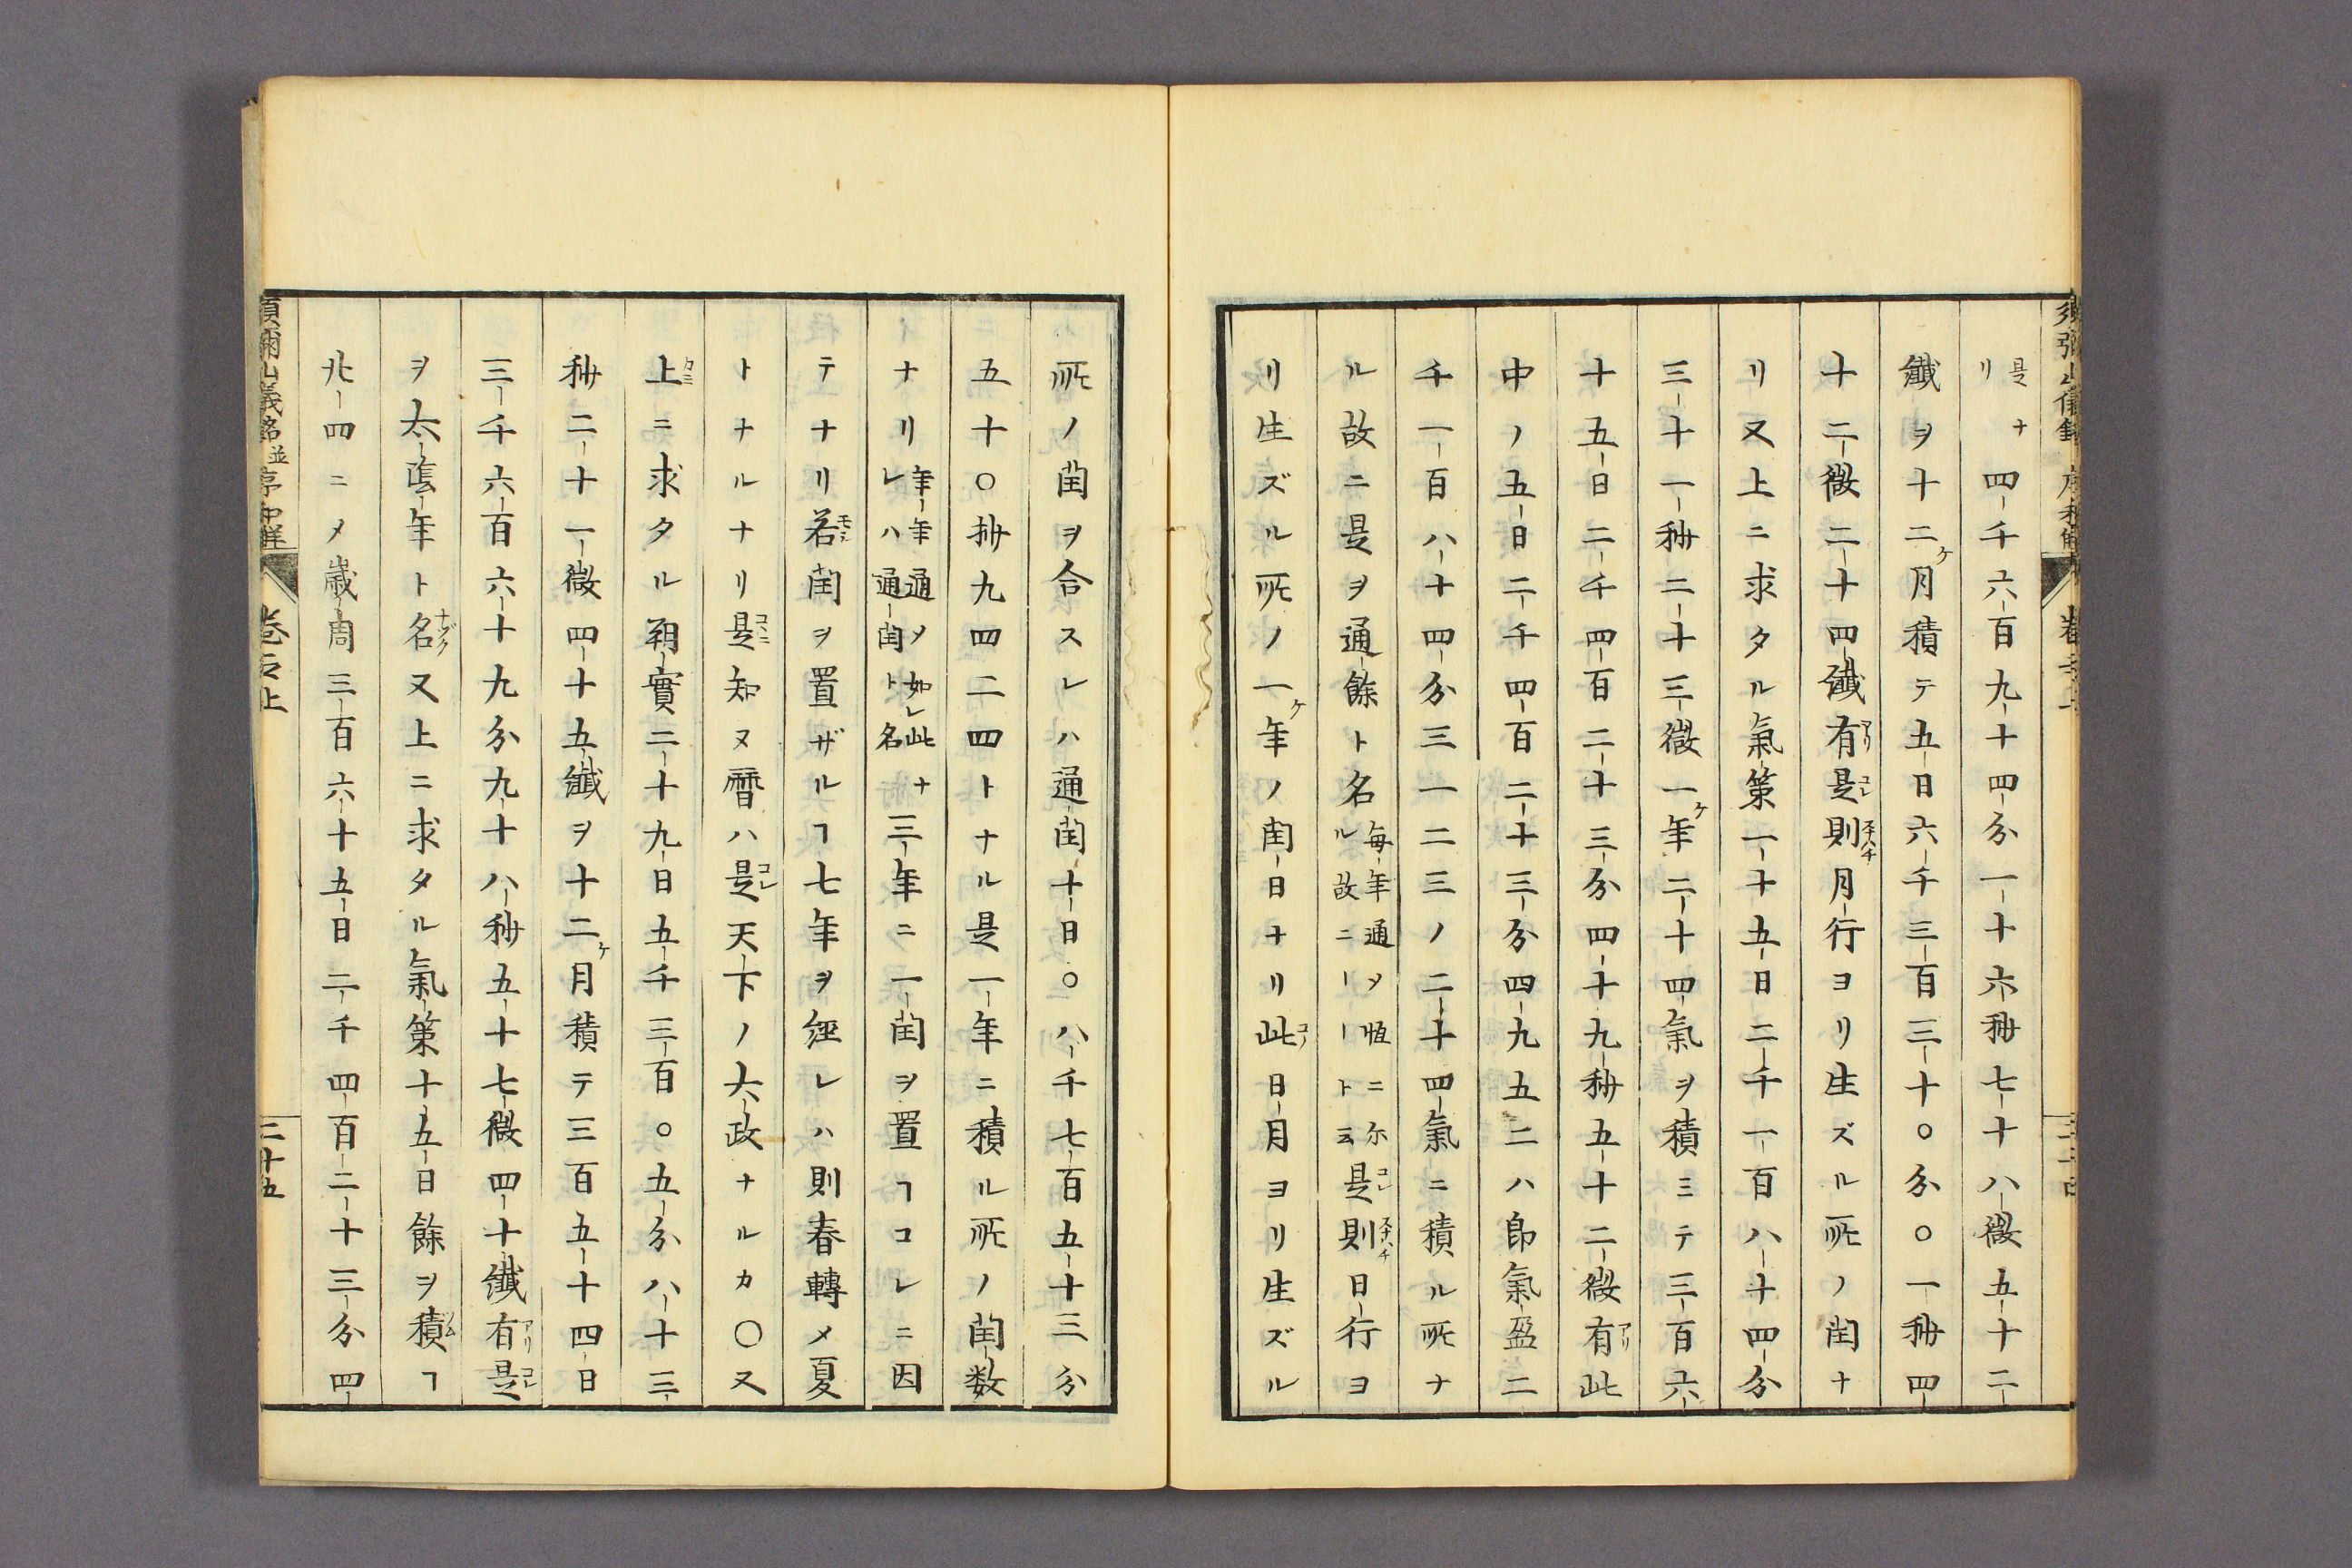 是ナリ四千六百九十四分一十六秒七十八微五十二
纎ヲ十二ケ月積テ五日六千三百三十〇分〇一秒四
十二微二十四纎有是則月行ヨリ生ズル所ノ閏ナ
リ又上ニ求タル氣策一十五日二千一百八十四分
三十一秒二十三微一ケ年二十四氣ヲ積ミテ三百六
十五日二千四百二十三分四十九秒五十二微有此
中ノ五日二千四百二十三分四九五二ハ卽氣盈二
千一百八十四分三一二三ノ二十四氣ニ積ル所ナ
ル故ニ是ヲ通餘ト名毎年通メ恒ニ尓ル故ニ一一ト云是則日行ヨ
リ生ズル所ノ一ケ年ノ閏日ナリ此日月ヨリ生ズル
所ノ閏ヲ合スレハ通閏十日〇八千七百五十三分
五十〇秒九四二四トナル是一年ニ積ル所ノ閏数
ナリ年年通メ如レ此ナレハ通閏ト名三年ニ一閏ヲ置ヿコレニ因
テナリ若閏ヲ置ザルヿ七年ヲ經レハ則春轉メ夏
トナルナリ是知ヌ曆ハ是天下ノ大政ナルカ〇又
上ニ求タル朔實二十九日五千三百〇五分八十三
秒二十一微四十五纎ヲ十二ケ月積テ三百五十四日
三千六百六十九分九十八秒五十七微四十纎有是
ヲ太陰年ト名又上ニ求タル氣策十五日餘ヲ積ヿ
廿四ニメ歳周三百六十五日二千四百二十三分四
須彌山儀銘並序和解 卷之上 二十五